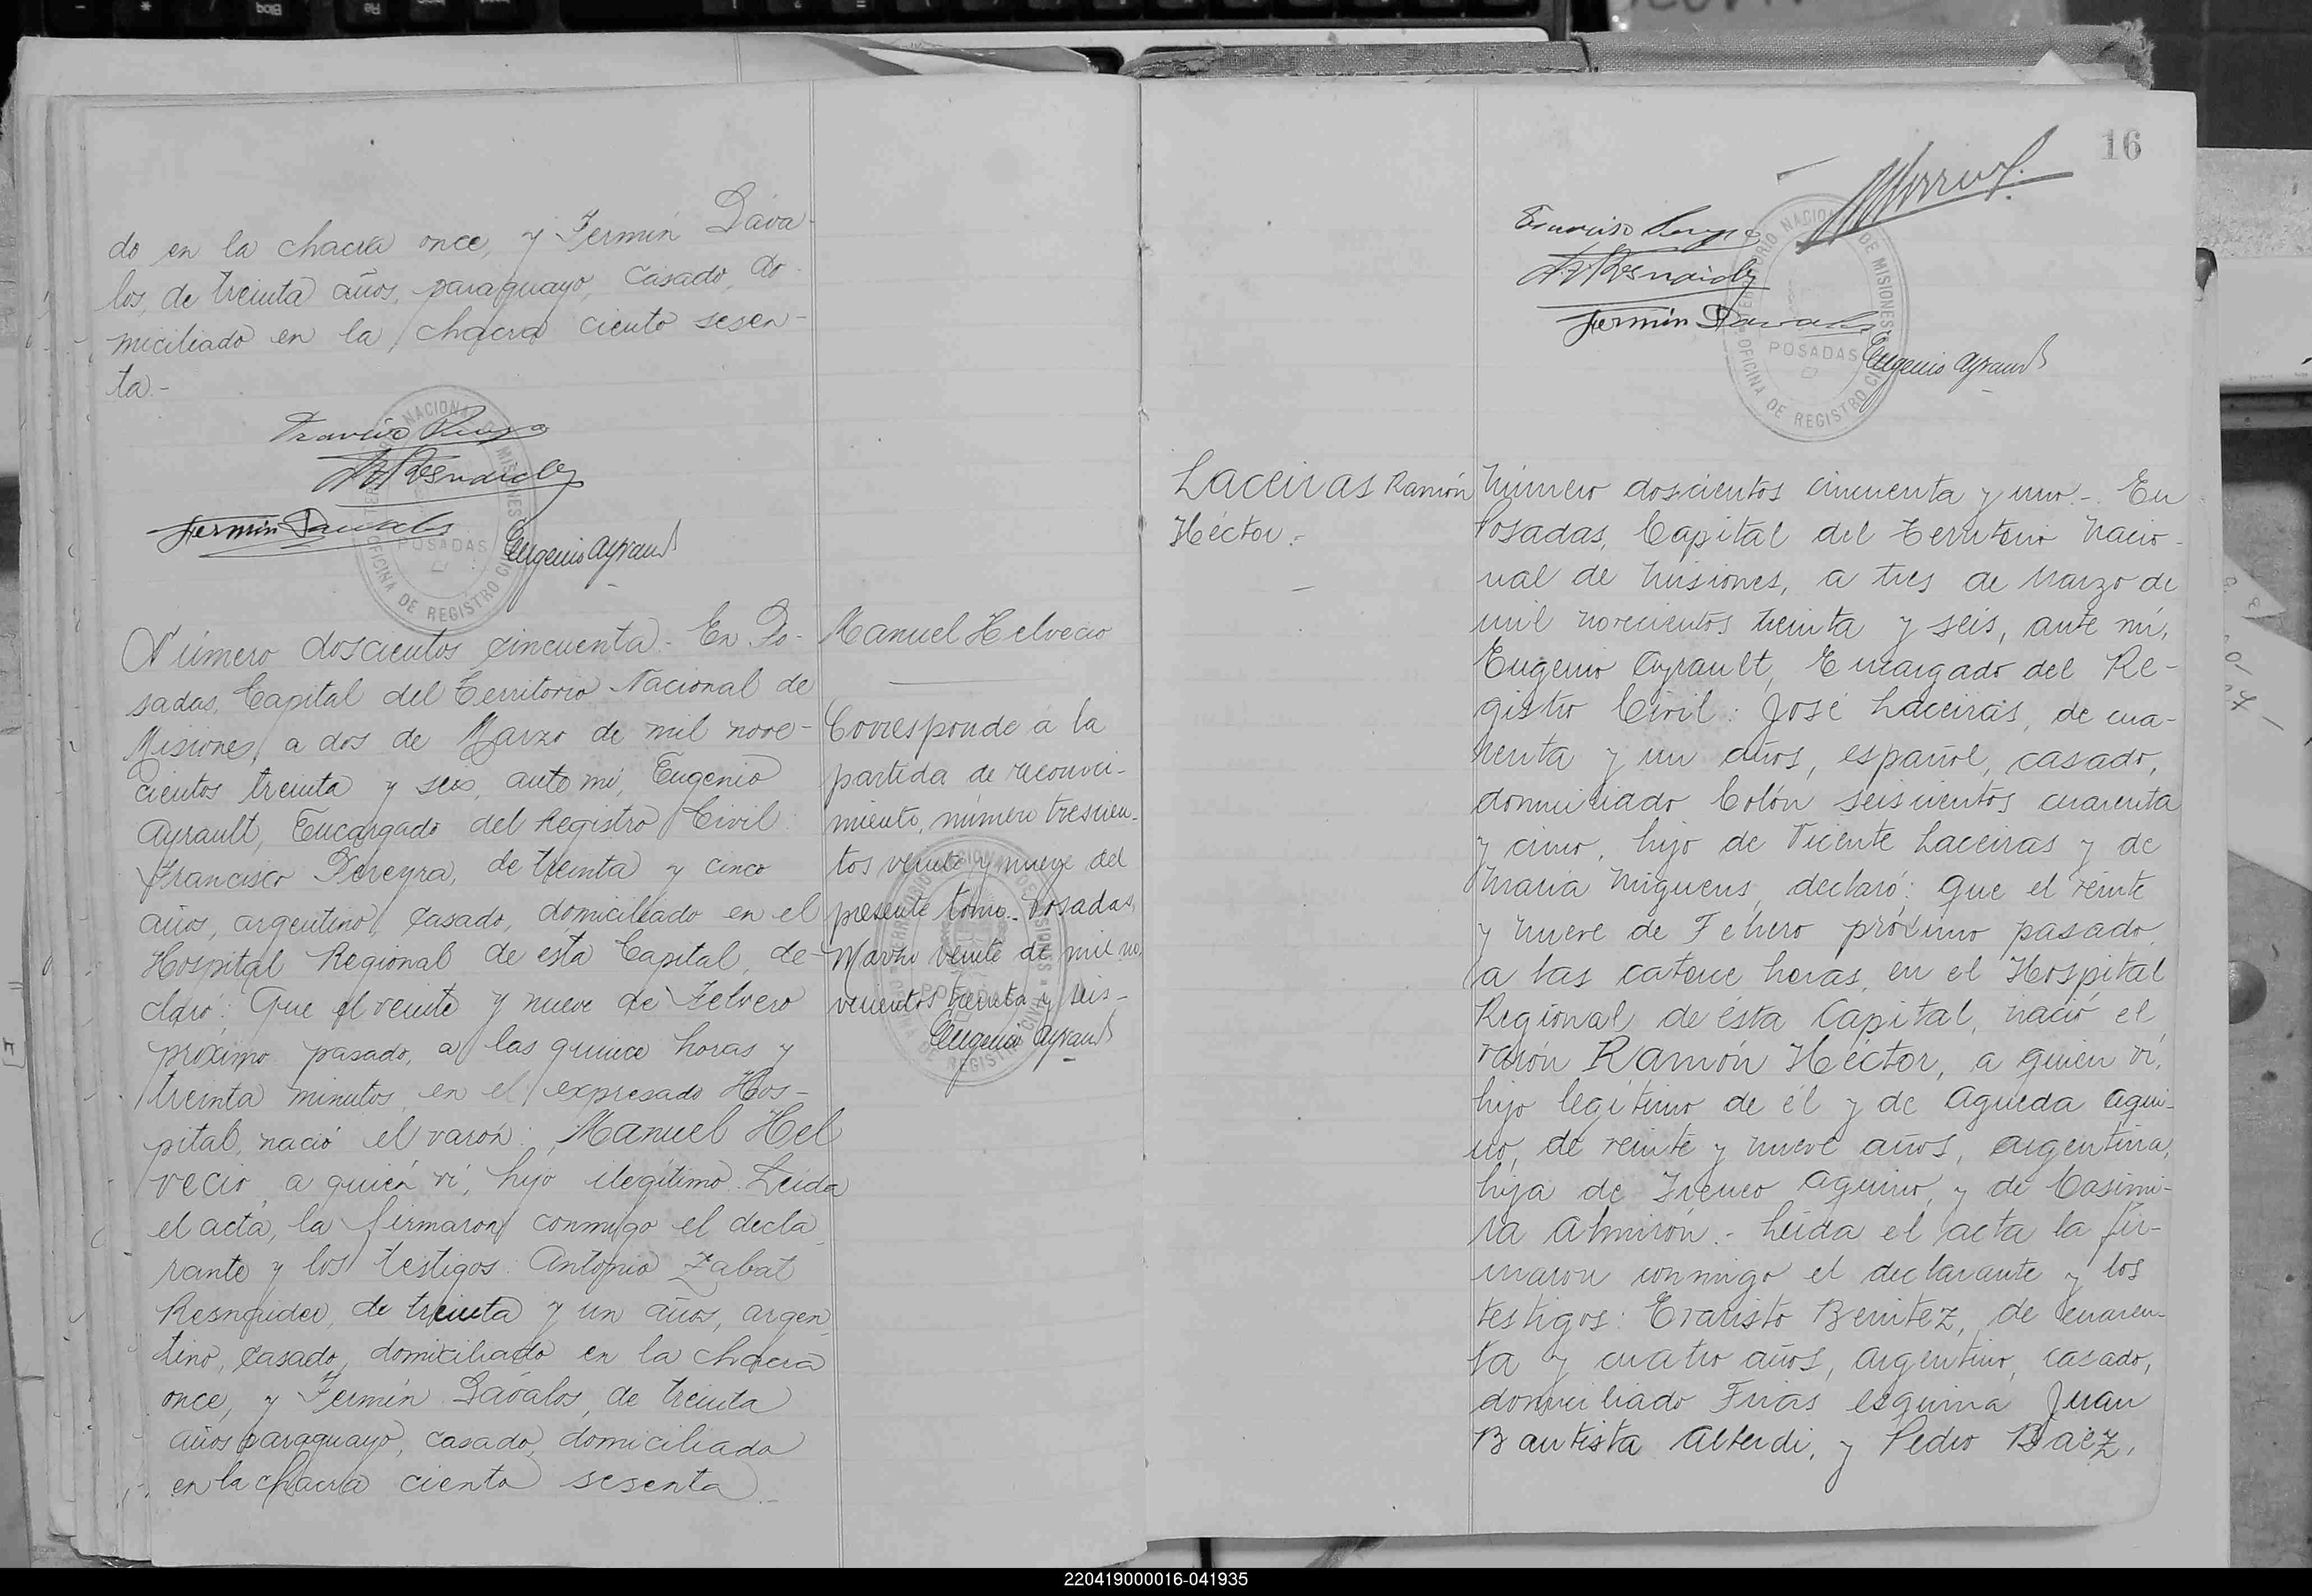 do en la chacra once, y Fermín Dáva-
los, de treinta años, paraguayo, casado, do-
miciliado en la chacra ciento sesen-
ta.-
NACIONAL
MISIONES
POSADAS
OFICINA DE REGISTRO CIVIL
Fermín Davalos
Eugenio Ayrault
Número doscientos cincuenta.- En Po-
sadas, Capital del Territorio Nacional de
Misiones, a dos de Marzo de mil nove-
cientos treinta y seis, ante mí, Eugenio
Ayrault, Encargado del Registro Civil:
Francisco Pereyra, de treinta y cinco
años, argentino, casado, domiciliado en el
Hospital Regional de esta Capital, de-
claró: Que el veinte y nueve de Febrero
próximo pasado, a las quince horas y
treinta minutos, en el expresado Hos-
pital, nació el varón: Manuel Hel
vecio, a quien ví, hijo ilegítimo. Leída
el acta, la firmaron conmigo el decla
rante y los testigos: Antonio Zabat
Resnaider, de treinta y un años, argen
tino, casado, domiciliado en la chacra
once, y Fermín Dávalos, de treinta
años paraguayo, casado, domiciliado
en la chacra ciento sesenta.-
Manuel Helvecio
Corresponde a la
partida de reconoci-
miento, número trescien-
tos veinte y nueve del
presente tomo.- Posadas,
Marzo veinte de mil no
vecientos treinta y seis-
Eugenio Ayrault
16
Francisco
Fermín Davalos
TERRITORIO NACIONAL DE MISIONES
POSADAS
OFICINA DE REGISTRO CIVIL
Eugenio Ayrault
Laceiras Ramón
Héctor.-
Número doscientos cincuenta y uno.- En
Posadas, Capital del Territorio Nacio-
nal de Misiones, a tres de Marzo de
mil novecientos treinta y seis, ante mí,
Eugenio Ayrault, Encargado del Re-
gistro Civil: José Laceiras, de cua-
renta y un años, español, casado,
domiciliado Colón seiscientos cuarenta
y cinco, hijo de Vicente Laceiras y de
María Miguens, declaró: Que el veinte
y nueve de Febrero próximo pasado,
a las catorce horas, en el Hospital
Regional de ésta Capital, nació el
varón Ramón Héctor, a quien ví,
hijo legítimo de él y de Agueda Aqui-
no, de veinte y nueve años, argentina,
hija de Ireneo Aquino, y de Casimi-
ra Almirón.- Leída el acta la fir-
maron conmigo el declarante y los
testigos: Evaristo Benitez, de cuaren-
ta y cuatro años, argentino, casado,
domiciliado Frias esquina Juan
Bautista Alberdi, y Pedro Baéz,
220419000016-041935